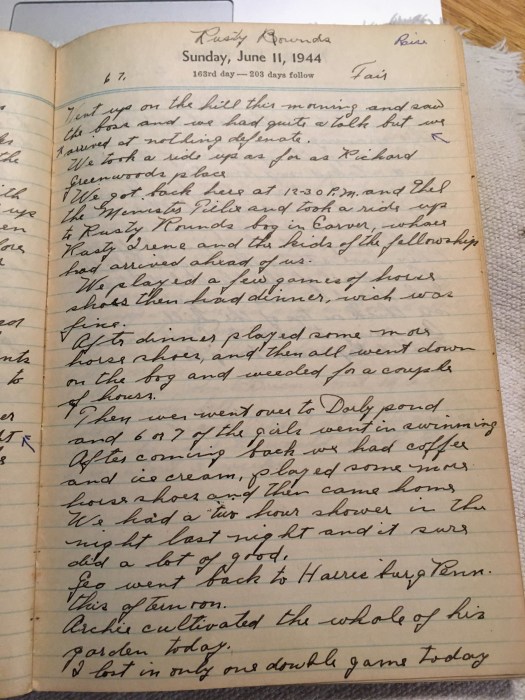 Rusty Rounds
Sunday, June 11, 1944
163rd day — 203 days follow
67.
Fair
Went up on the hill this morning and saw
the boss and we had quite a talk but we
arrived at nothing defenate.
We took a ride up as far as Richard
Greenwoods place
We got back here at 12-30 P.M. and Ethel
the Menister Tilie and took a ride up
to Rusty Rounds bog in Carver, whare
Rusty Irene and the kids of the fellowship
had arrived ahead of us.
We played a few games of horse
shoes then had dinner, wich was
fine.
After dinner played some more
horse shoes, and then all went down
on the bog and weeded for a couple
of hours.
Then we went over to Darly pond
and 6 or 7 of the girls went in swimming
After coming back we had coffee
and ice cream, played some more
horse shoes and then came home
We had a two hour shower in the
night last night and it sure
did a lot of good.
Geo went back to Harrisburg Penn.
this afternoon.
Archie cultivated the whole of his
garden today.
I lost in only one double game today